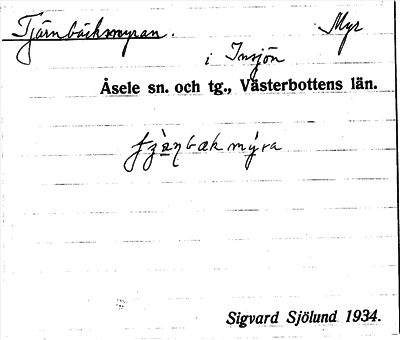 Tjärnbäcksmyran. Myr
i Insjön
Åsele sn. och tg., Västerbottens län.
mýra
Sigvard Sjölund 1934.